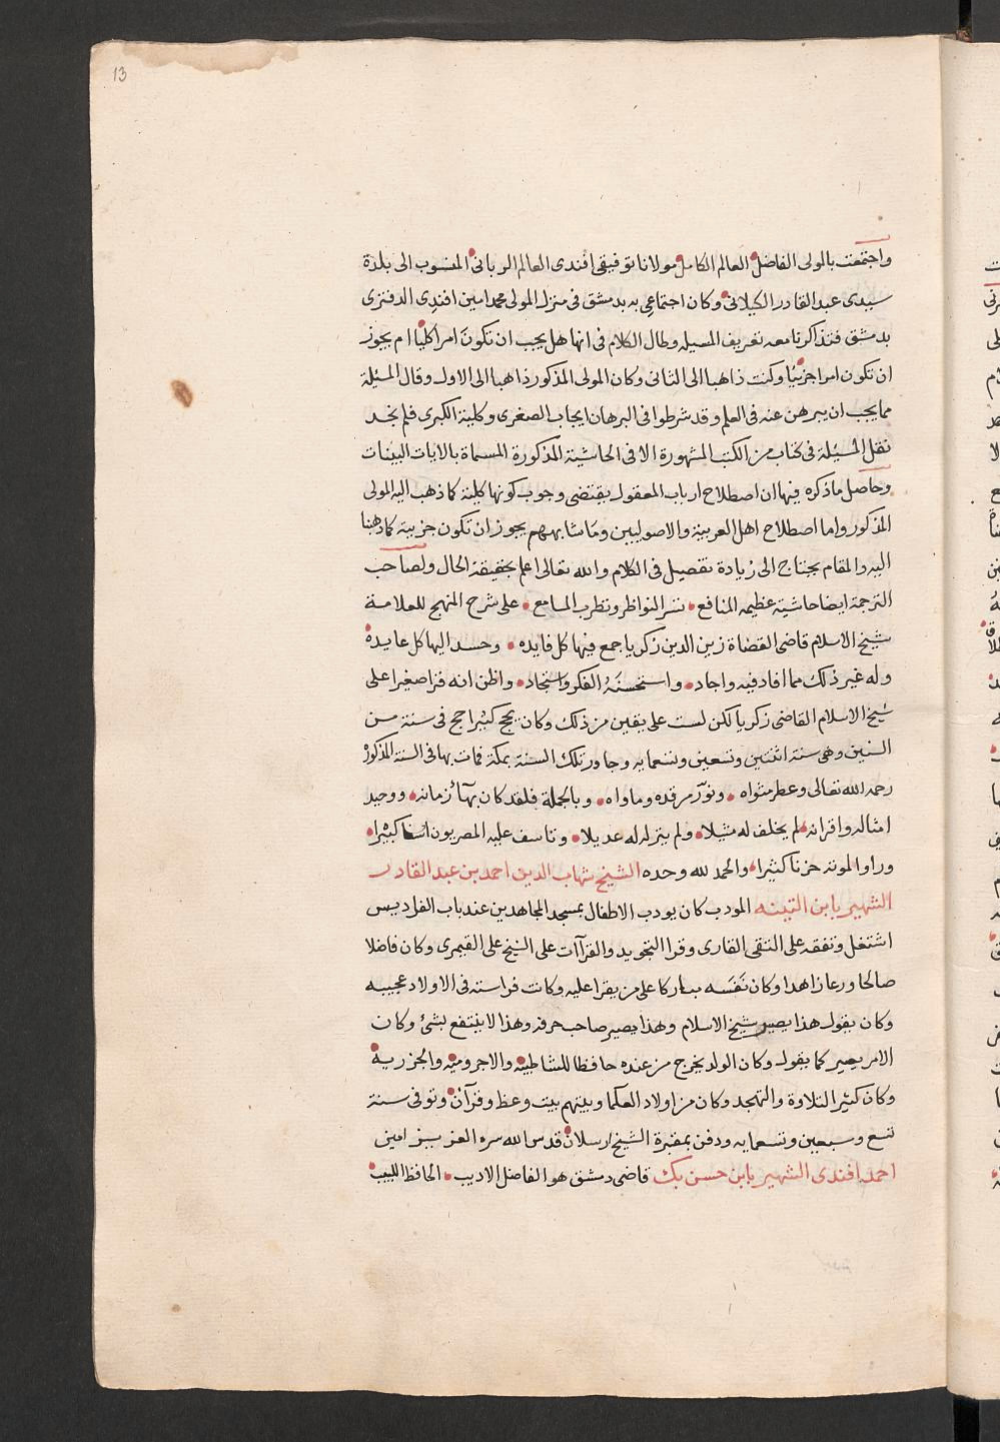 13
واجتمعت بالمولى الفاضل العالم الكامل مولانا توفيقى افندى العالم الربانى المنسوب الى بلدة
سيدى عبد القادر الكيلانى وكان اجتماعى به بدمشق فى منزل المولى محمد امين افندى الدفترى
بدمشق فتذاكرنا معه تعريف المسيله وطال الكلام فى انها هل يجب ان تكون امرا كليا ام يجوز
ان تكون امرا جزئيا وكنت ذاهبا الى الثانى وكان المولى المذكور ذاهبا الى الاول وقال المسئلة
مما يجب ان يبرهن عنه فى العلم وقد شرطوا فى البرهان ايجاب الصغرى وكلية الكبرى فلم نجد
نقل المسيلة فى كتاب من الكتب المشهورة الا فى الحاشية المذكورة المسماة بالايات البينات
وحاصل ما ذكره فيها ان اصطلاح ارباب المعقول يقتضى وجوب كونها كلية كما ذهب اليه المولى
المذكور واما اصطلاح اهل العربية والاصوليين وما شابههم يجوز ان تكون جزيية كما ذهبنا
اليه والمقام يحتاج الى زيادة تفصيل فى الكلام والله تعالى اعلم بحقيقة الحال ولصاحب
الترجمة ايضا حاشية عظيمه المنافع تسر النواظر وتطرب المسامع على شرح المنهج للعلامة
شيخ الاسلام قاضى القضاة زين الدين زكريا جمع فيها كل فايده وحسد اليها كل عايده
وله غير ذلك مما افاد فيه واجاد واستحسنه الفكر واستجاد واظن انه قرا صغيرا على
شيخ الاسلام القاضى زكريا لكن لست على يقين من ذلك وكان يحج كثيرا حج فى سنة من
السنين وهى سنة اثنتين وتسعين وتسعمايه وجاور تلك السنة بمكة فمات بها فى السنة المذكورة
رحمه الله تعالى وعطر مثواه ونور مرقده وماواه وبالجملة فلقد كان بهاء زمانه ووحيد
امثاله واقرانه لم يخلف له مثيلا ولم يترك له عديلا وتاسف عليه المصريون اسفا كبيرا
وراوا لموته حزنا كثيرا والحمد لله وحده الشيخ شهاب الدين احمد بن عبد القادر
الشهير بابن التينه المودب كان يودب الاطفال بمسجد المجاهدين عند باب الفراديس
اشتغل وتفقه على التقى القارى وقرا التجويد والقراآت على الشيخ على القيمرى وكان فاضلا
صالحا ورعا زاهدا وكان نفسه مباركا على من يقرا عليه وكانت فراسته فى الاولاد عجيبه
وكان يقول هذا يصير شيخ الاسلام وهذا يصير صاحب حرفه وهذا لا ينتفع بشئ وكان
الامر يصير كما يقول وكان الولد يخرج من عنده حافظا للشاطبية والاجروميه والجزرية
وكان كثير التلاوة والتهجد وكان من اولاد العلما وبيتهم بيت وعظ وقرآن وتوفى سنة
تسع وسبعين وتسعمايه ودفن بمقبرة الشيخ ارسلان قدس الله سره العزيز امين
احمد افندى الشهير بابن حسن بك قاضى دمشق هو الفاضل الاديب الحافظ اللبيب